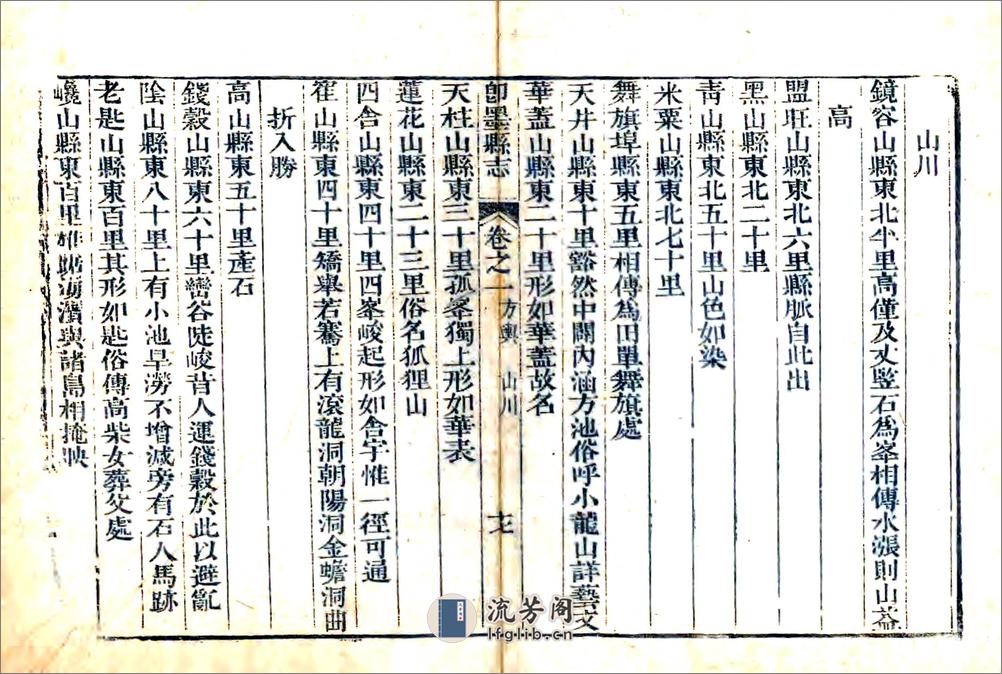 山川
鏡容山縣東北半里高僅及丈豎石為峯相傳水漲則山益
高
盟旺山縣東北六里縣脈自此出
黑山縣東北二十里
靑山縣東北五十里山色如染
米粟山縣東北七十里
舞旗埠縣東五里相傳為田單舞旗處
天井山縣東十里豁然中闢內涵方池俗呼小龍山詳藝文
華蓋山縣東二十里形如華蓋故名
卽墨縣志 卷之一 方輿 山川 十七
天柱山縣東三十里孤峯獨上形如華表
蓮花山縣東二十三里俗名狐狸山
四舍山縣東四十里四峯峻起形如舍宇惟一徑可通
崔山縣東四十里矯舉若騫上有滾龍洞朝陽洞金蟾洞曲
折入勝
高山縣東五十里產石
錢穀山縣東六十里巒谷陡峻昔人運錢穀於此以避亂
陰山縣東八十里上有小池旱澇不增減旁有石人馬跡
老匙山縣東百里其形如匙俗傳高柴女葬父處
巉山縣東百里雄踞海濱與諸島相掩映
流芳阁
lfglib.cn